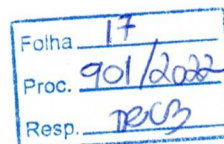 Folha 17
Proc. 901/2022
Resp.